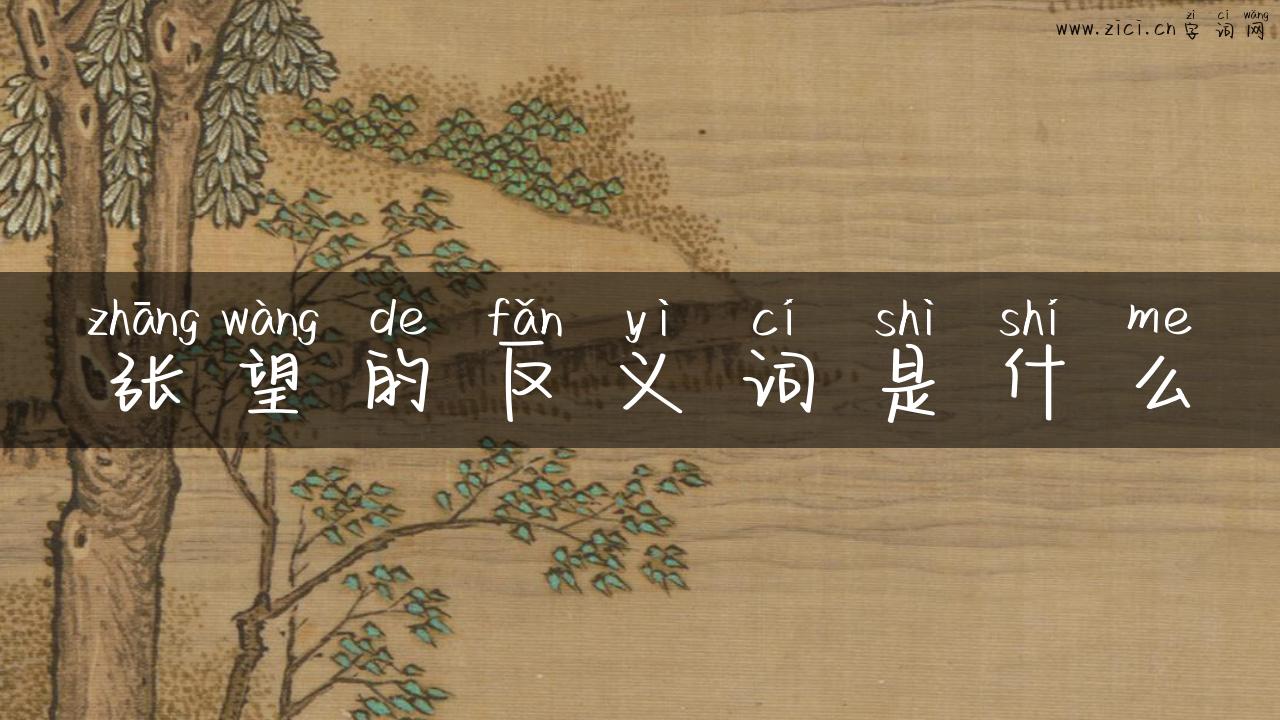 zì cí wǎng
www.zici.cn 字词网
zhāng wàng de fǎn yì cí shì shí me
张望的反义词是什么